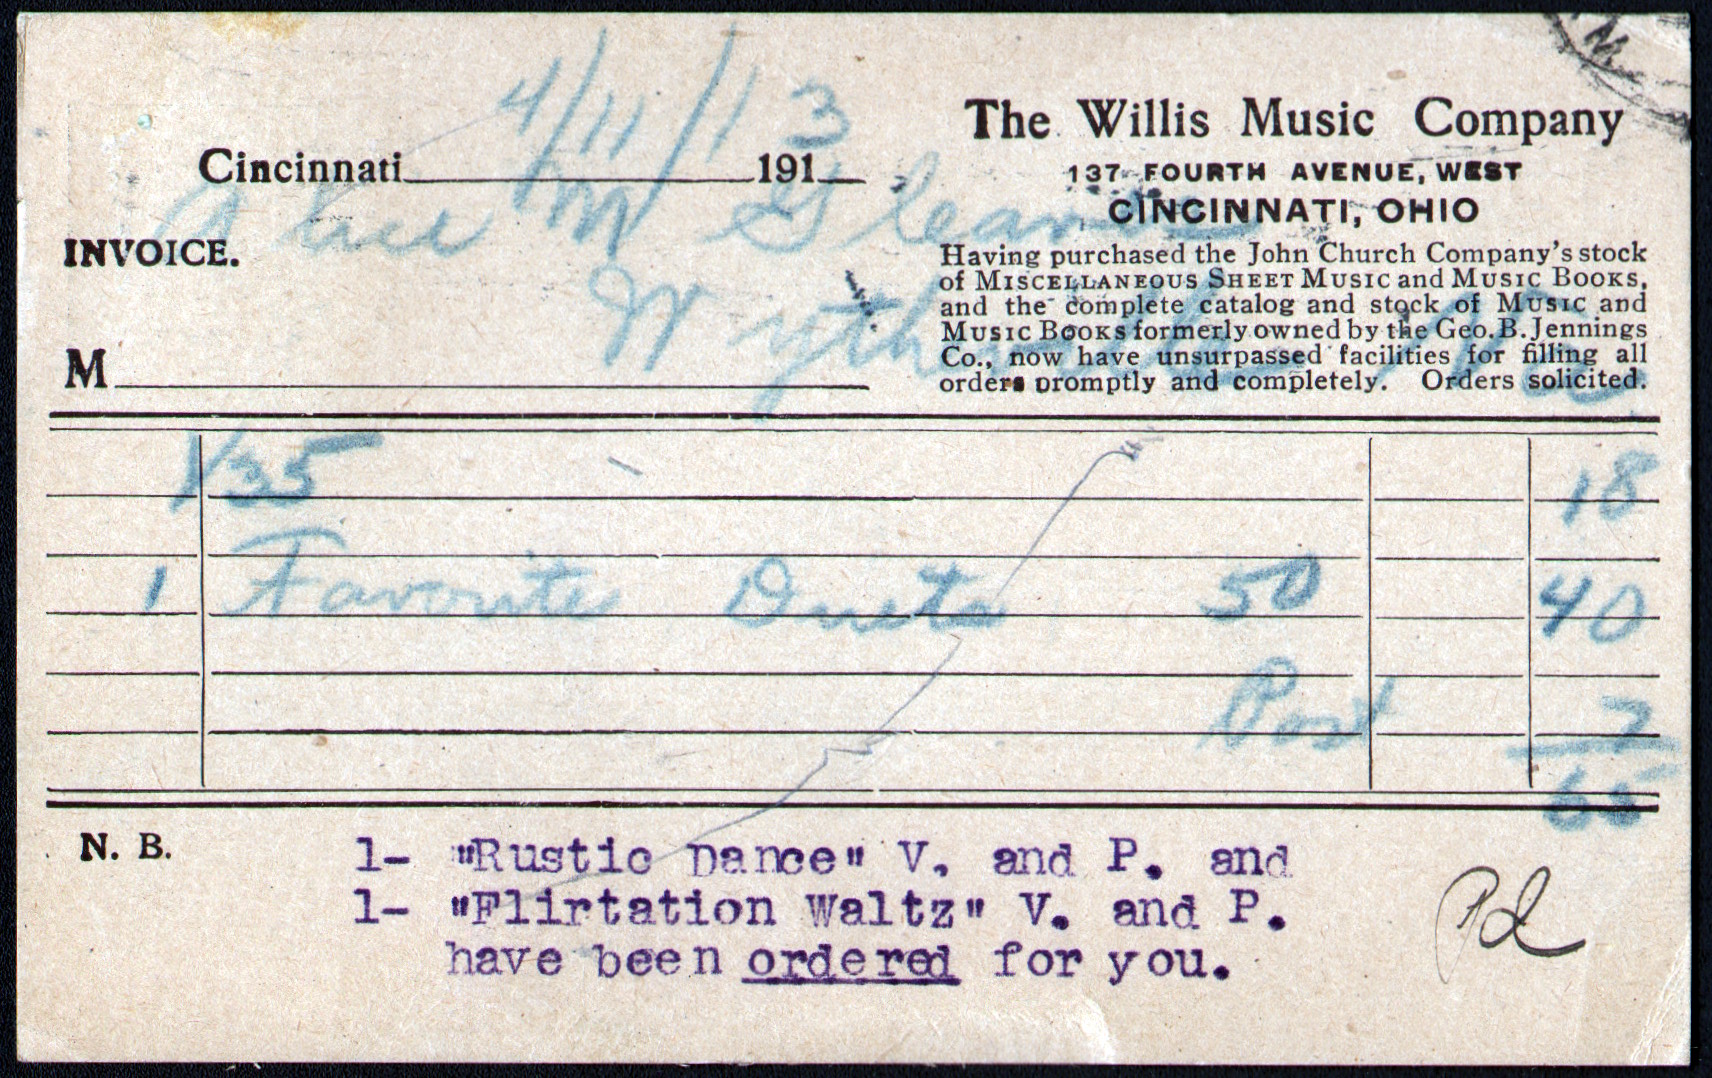 4/11/13
The Willis Music Company
Cincinnati 191
137 FOURTH AVENUE, WEST
CINCINNATI, OHIO
Alice M Gleaves
INVOICE.
Having purchased the John Church Company's stock
of MISCELLANEOUS SHEET MUSIC and MUSIC BOOKS,
and the complete catalog and stock of MUSIC and
MUSIC BOOKS formerly owned by the Geo. B. Jennings
Co., now have unsurpassed facilities for filling all
orders promptly and completely. Orders solicited.
M
1/35 18
1 Favorite Duets 50 40
Post 7
65
N. B.
1- "Rustic Dance" V. and P. and
1- "Flirtation Waltz" V. and P.
have been ordered for you.
Pd